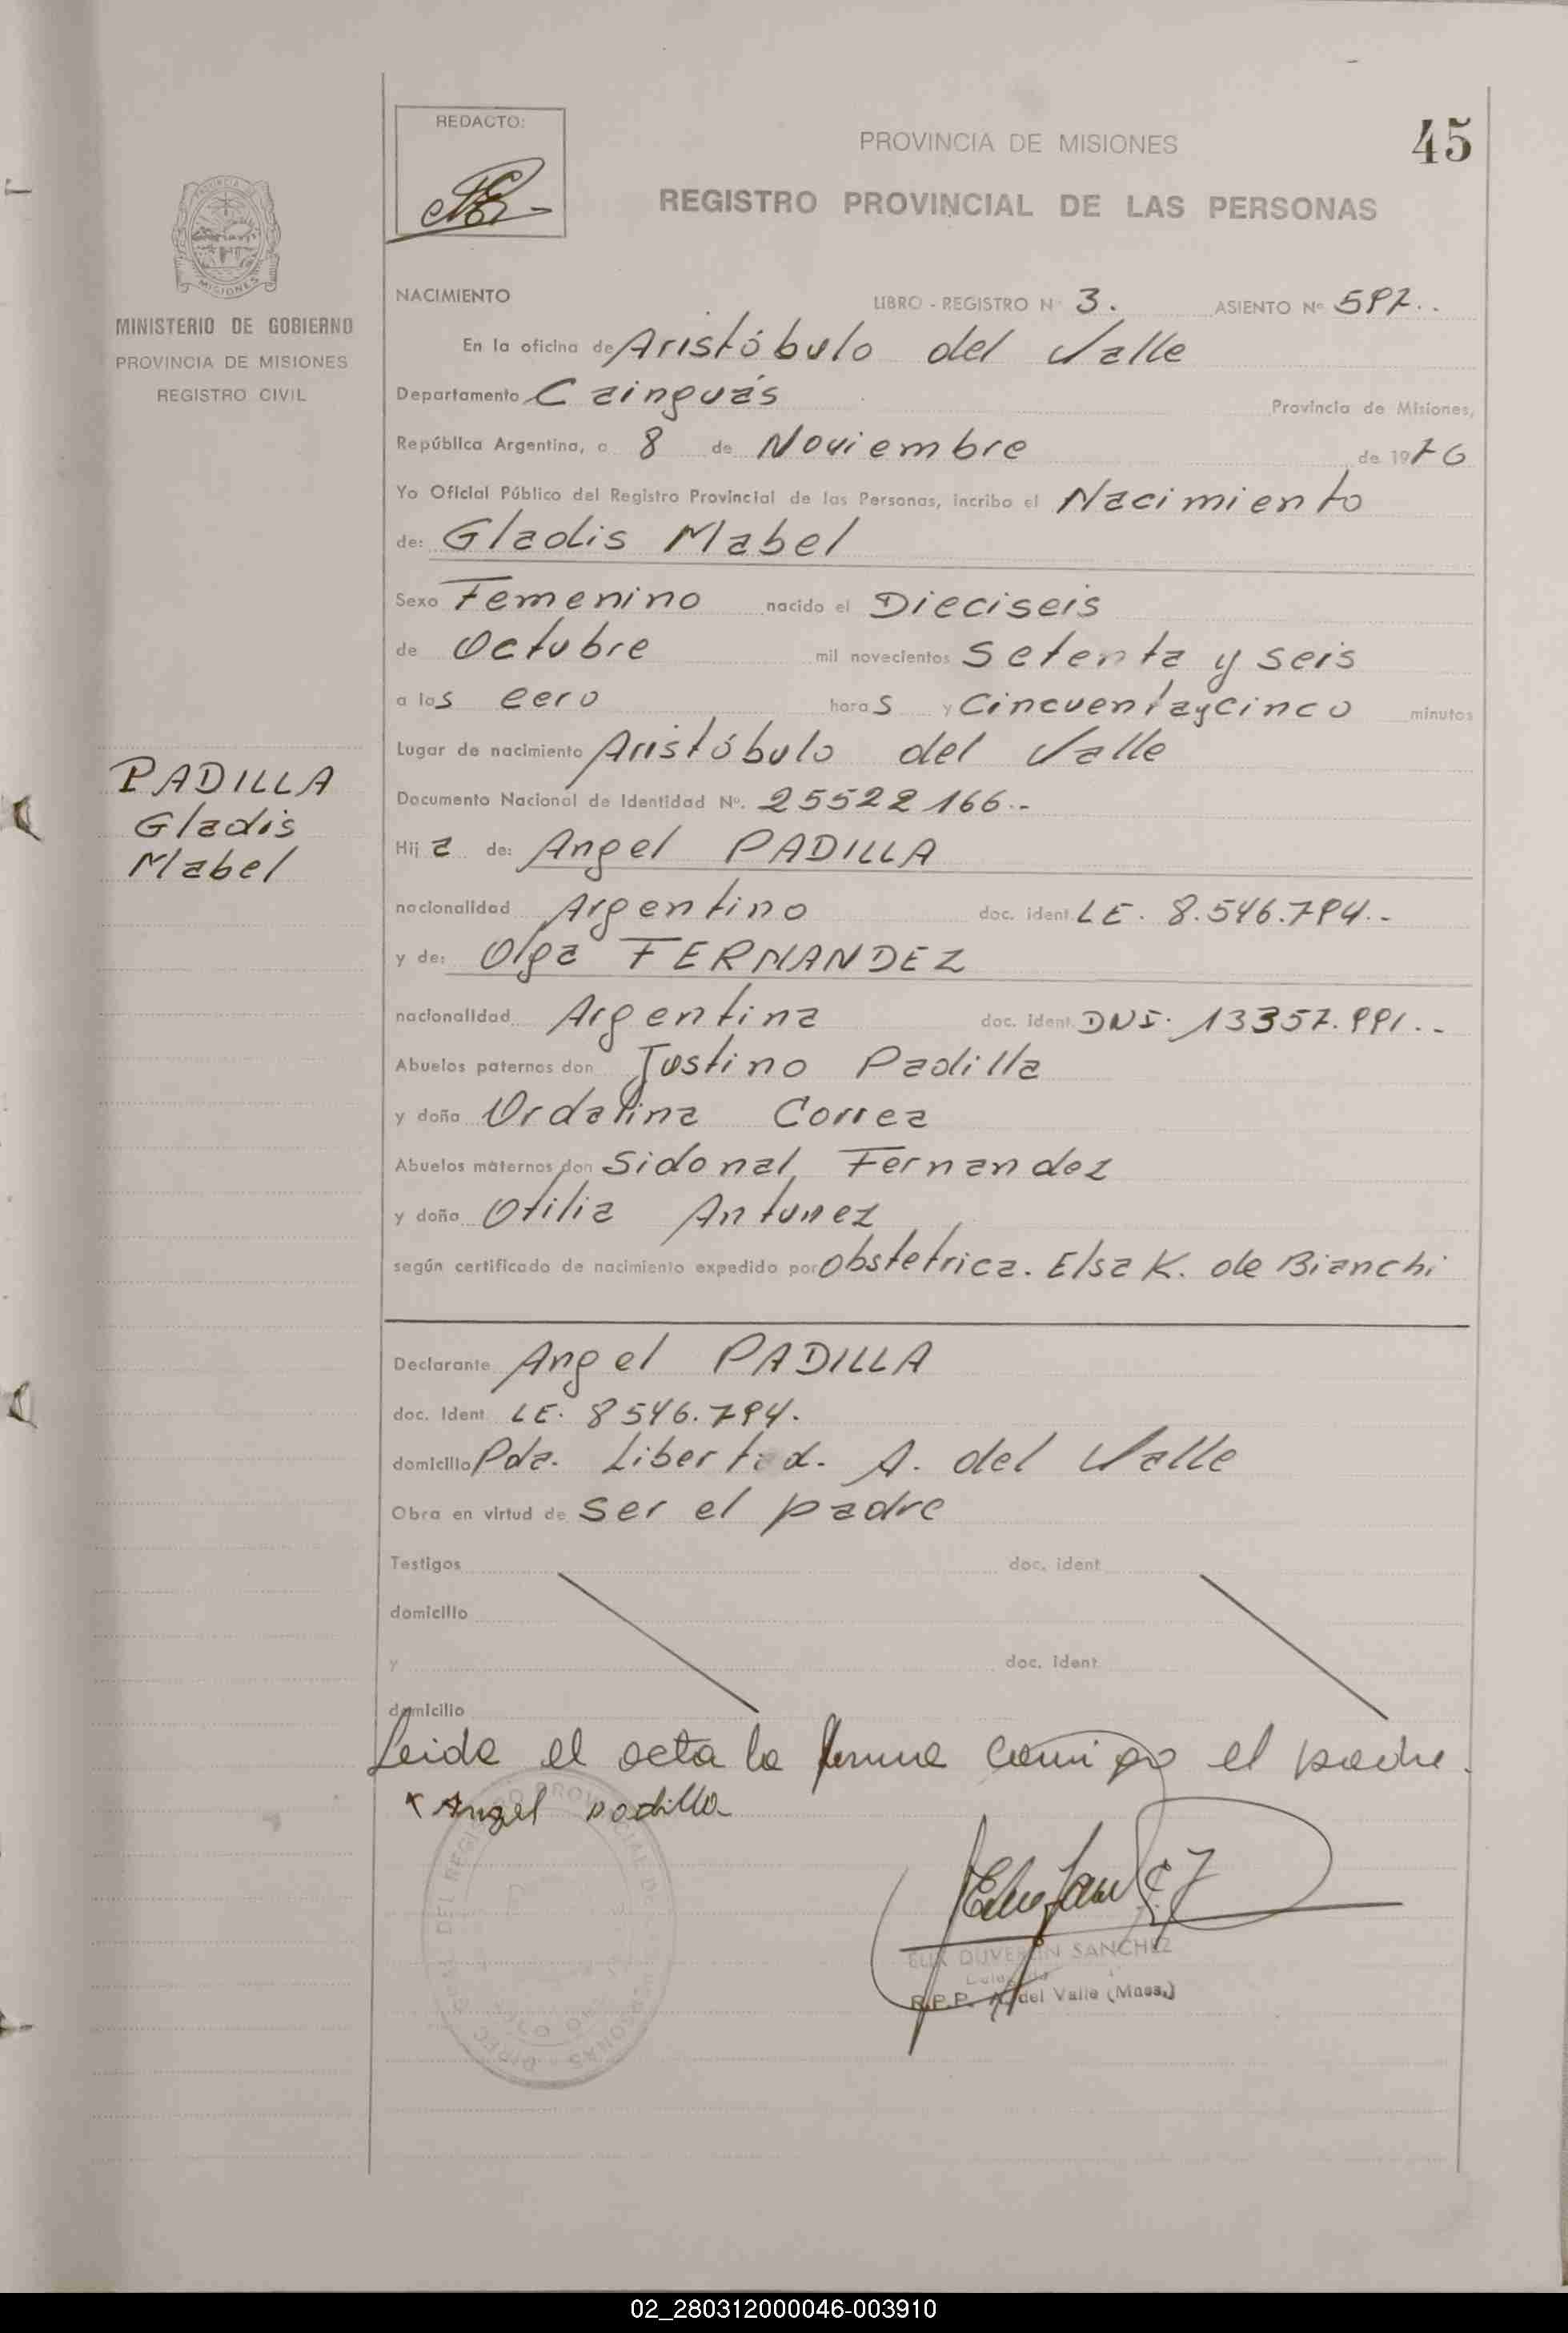 REDACTO:
45
PROVINCIA DE MISIONES
REGISTRO PROVINCIAL DE LAS PERSONAS
MISIONES
MINISTERIO DE GOBIERNO
PROVINCIA DE MISIONES
REGISTRO CIVIL
NACIMIENTO LIBRO - REGISTRO Nº 3. ASIENTO Nº 597..
En la oficina de Aristóbulo del Valle
Departamento Cainguás Provincia de Misiones,
República Argentina, a 8 de Noviembre de 1976
Yo Oficial Público del Registro Provincial de las Personas, incribo el Nacimiento
de: Gladis Mabel
Sexo Femenino nacido el Dieciseis
de Octubre mil novecientos Setenta y seis
a las cero horas y Cincuentaycinco minutos
Lugar de nacimiento Aristóbulo del Valle
PADILLA
Gladis
Mabel
Documento Nacional de Identidad Nº. 25522166.-
Hija de: Angel PADILLA
nacionalidad Argentino doc. ident. LE. 8.546.794.-
y de: Olga FERNANDEZ
nacionalidad Argentina doc. ident. DNI. 13357.991..-
Abuelos paternos don Justino Padilla
y doña Ordalina Correa
Abuelos maternos don Sidonal Fernandez
y doña Otilia Antunez
según certificado de nacimiento expedido por Obstetrica. Elsa K. de Bianchi
Declarante Angel PADILLA
doc. Ident. LE. 8546.794.
domicilio Pda. Libertad. A. del Valle
Obra en virtud de Ser el padre
Testigos doc. ident
domicilio
y doc. ident
domicilio
Leida el acta la firma comigo el padre.
Angel Padilla
SANCHEZ
R.P.P. A. del Valle (Mnes.)
02_280312000046-003910